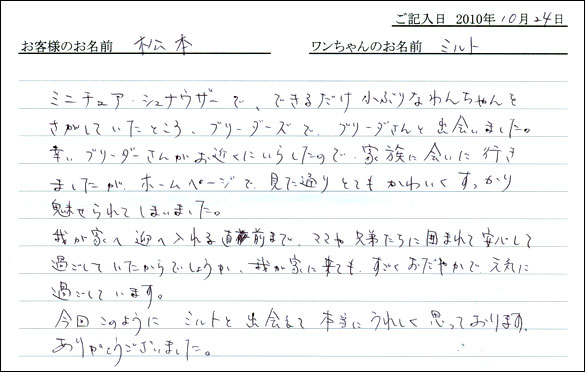 ご記入日 2010年10月24日
お客様のお名前 松本 ワンちゃんのお名前 ミルト
ミニチュア・シュナウザーで、できるだけ小ぶりなわんちゃんを
さがしていたところ、ブリーダーズで、ブリーダさんと出会いました。
幸い、ブリーダーさんがお近くにいらしたので、家族に会いに行き
ましたが、ホームページで見た通りとてもかわいくすっかり
魅せられてしまいました。
我が家へ迎へ入れる直前まで、ママや兄弟たちに囲まれて安心して
過ごしていたからでしょうか、我が家に来ても、すごくおだやかで元気に
過ごしています。
今回このように ミルトと出会えて本当にうれしく思っております。
ありがとうございました。